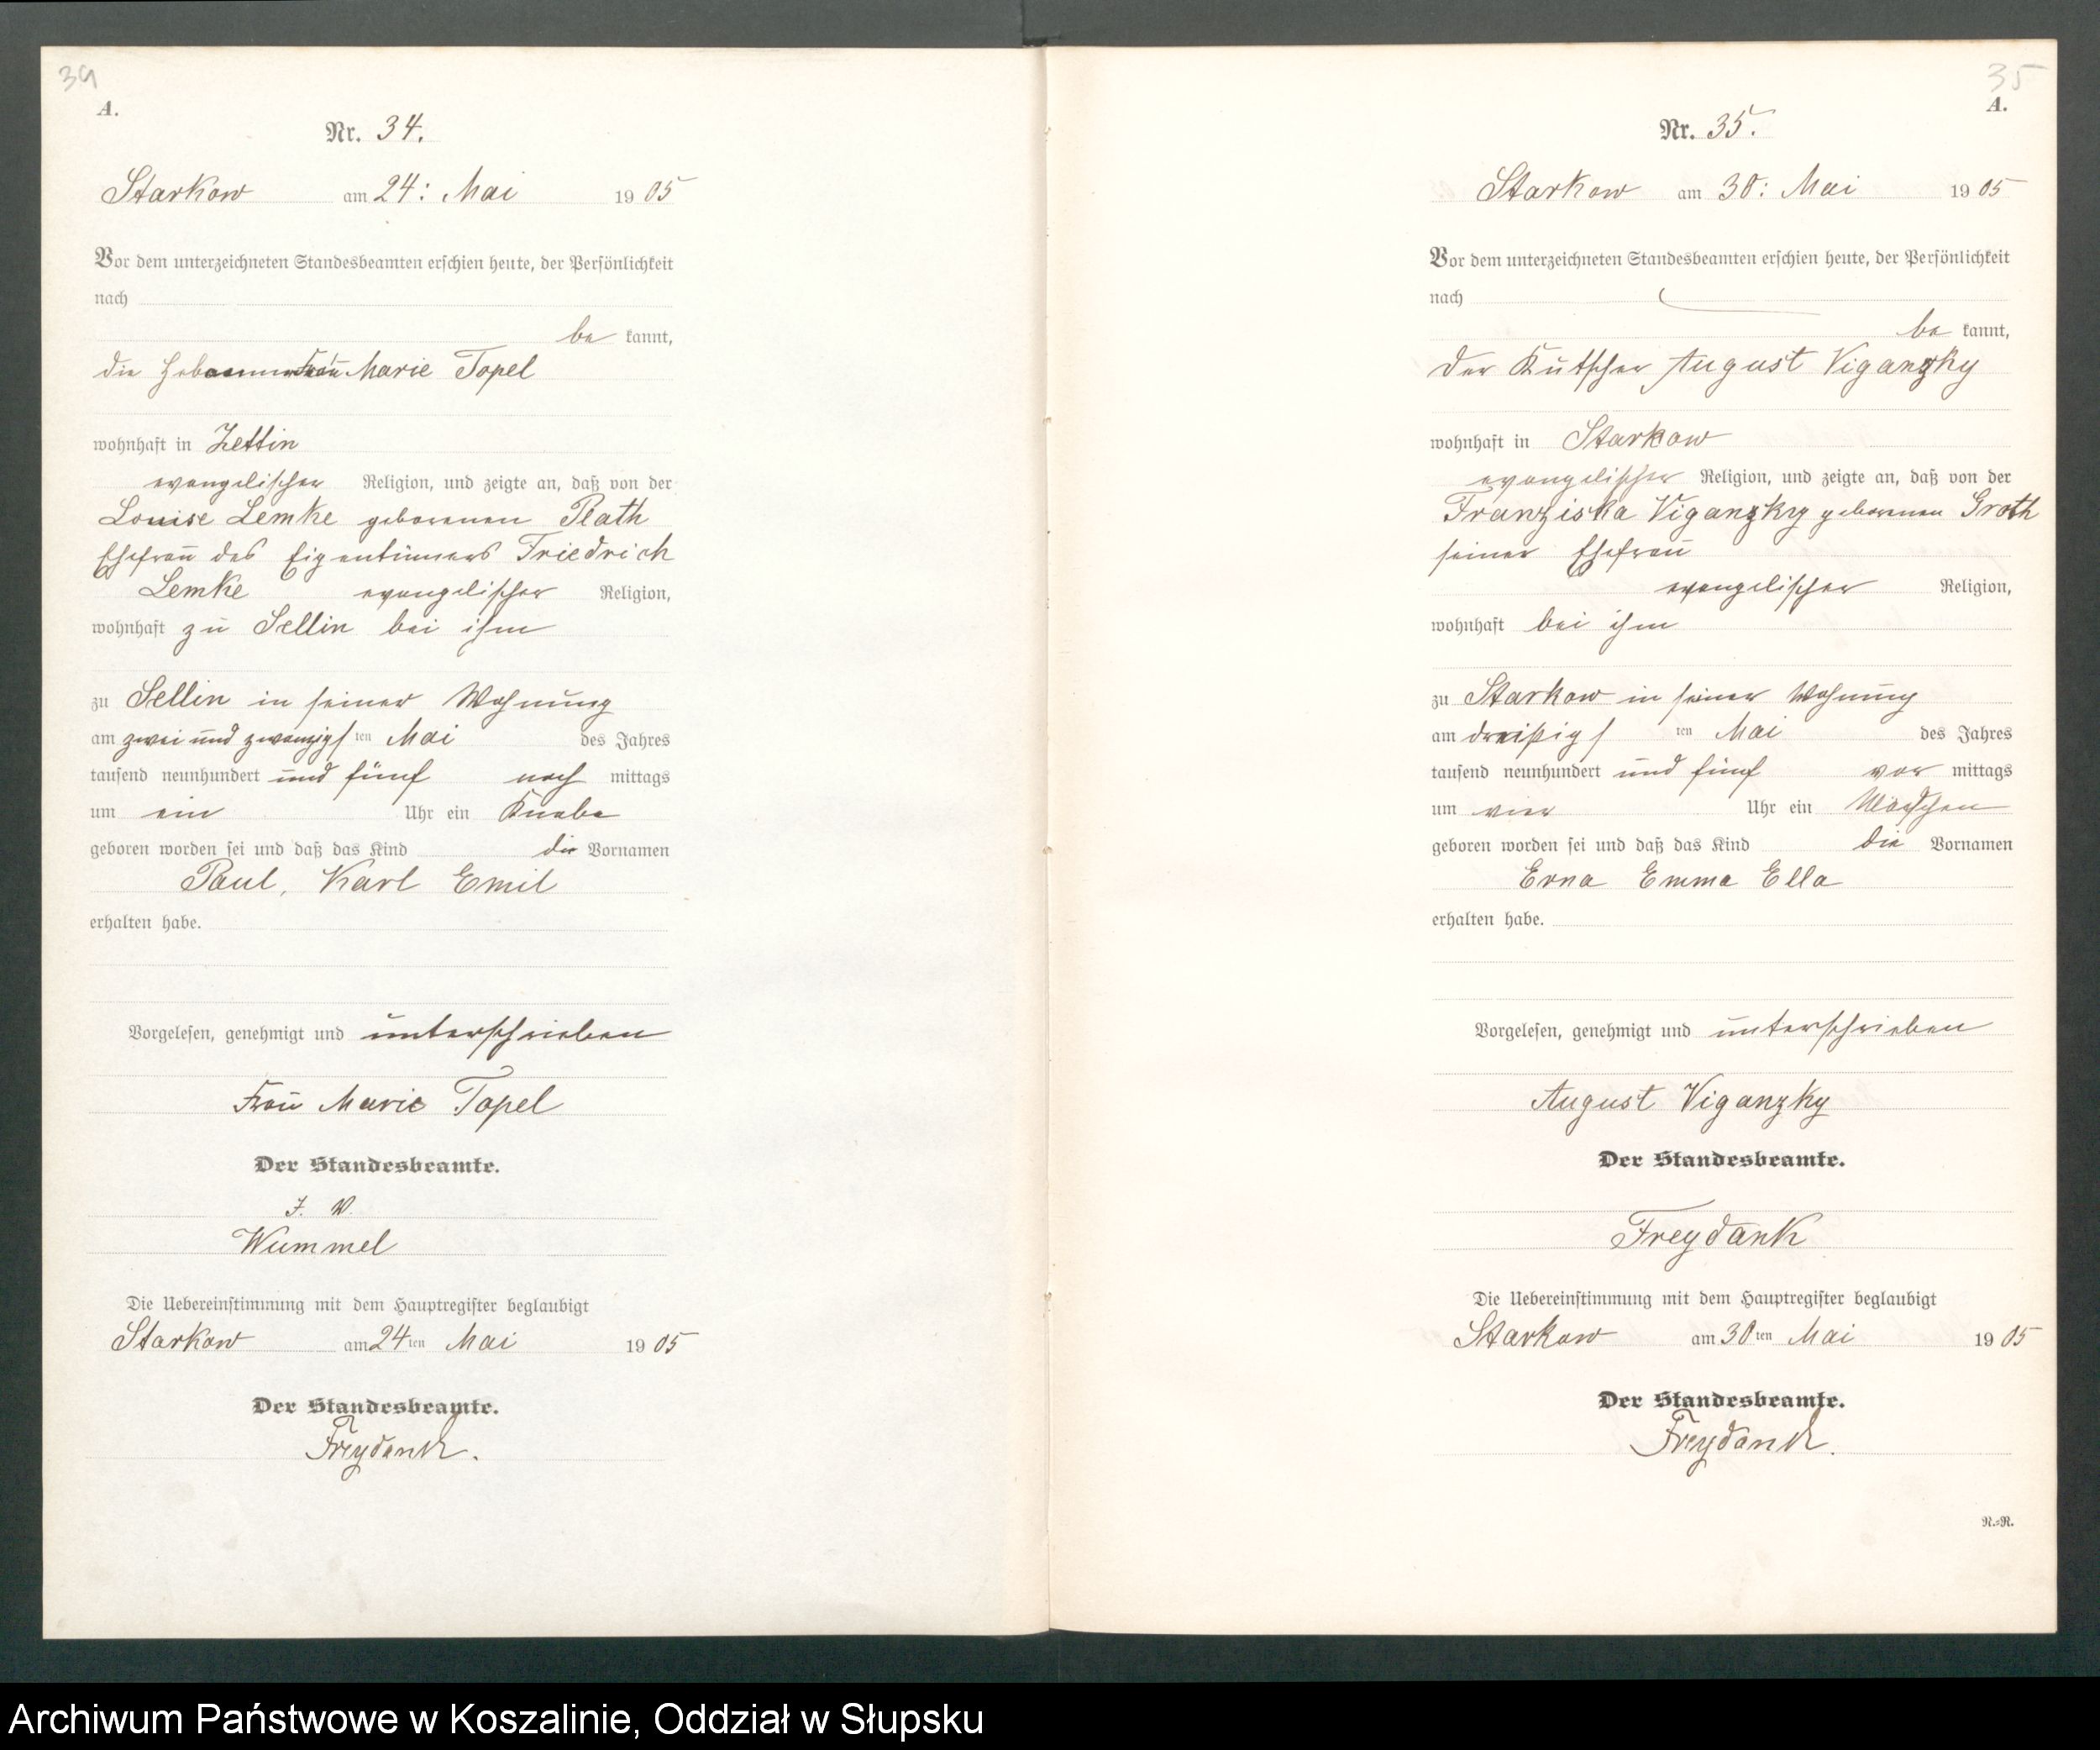 34
A.
Nr. 34.
Starkow am 24: Mai 1905
Vor dem unterzeichneten Standesbeamten erschien heute, der Persönlichkeit
nach
be kannt,
die Hebamme Frau Marie Topel
wohnhaft in Zettin
evangelischer Religion, und zeigte an, daß von der
Louise Lemke geborenen Plath
Ehefrau des Eigentümers Friedrich
Lemke evangelischer Religion,
wohnhaft zu Sellin bei ihm
zu Sellin in seiner Wohnung
am zwei und zwanzigsten Mai des Jahres
tausend neunhundert und fünf nach mittags
um ein Uhr ein Knabe
geboren worden sei und daß das Kind die Vornamen
Paul, Karl Emil
erhalten habe.
Vorgelesen, genehmigt und unterschrieben
Frau Marie Topel
Der Standesbeamte.
J. V.
Wummel
Die Uebereinstimmung mit dem Hauptregister beglaubigt
Starkow am 24ten Mai 1905
Der Standesbeamte.
Freydank.
35
A.
Nr. 35.
Starkow am 30: Mai 1905
Vor dem unterzeichneten Standesbeamten erschien heute, der Persönlichkeit
nach
be kannt,
der Kutscher August Viganzky
wohnhaft in Starkow
evangelischer Religion, und zeigte an, daß von der
Franziska Viganzky geborenen Groth
seiner Ehefrau
evangelischer Religion,
wohnhaft bei ihm
zu Starkow in seiner Wohnung
am dreißigsten Mai des Jahres
tausend neunhundert und fünf vor mittags
um vier Uhr ein Mädchen
geboren worden sei und daß das Kind die Vornamen
Erna Emma Ella
erhalten habe.
Vorgelesen, genehmigt und unterschrieben
August Viganzky
Der Standesbeamte.
Freydank
Die Uebereinstimmung mit dem Hauptregister beglaubigt
Starkow am 30ten Mai 1905
Der Standesbeamte.
Freydank.
N.=R.
Archiwum Państwowe w Koszalinie, Oddział w Słupsku